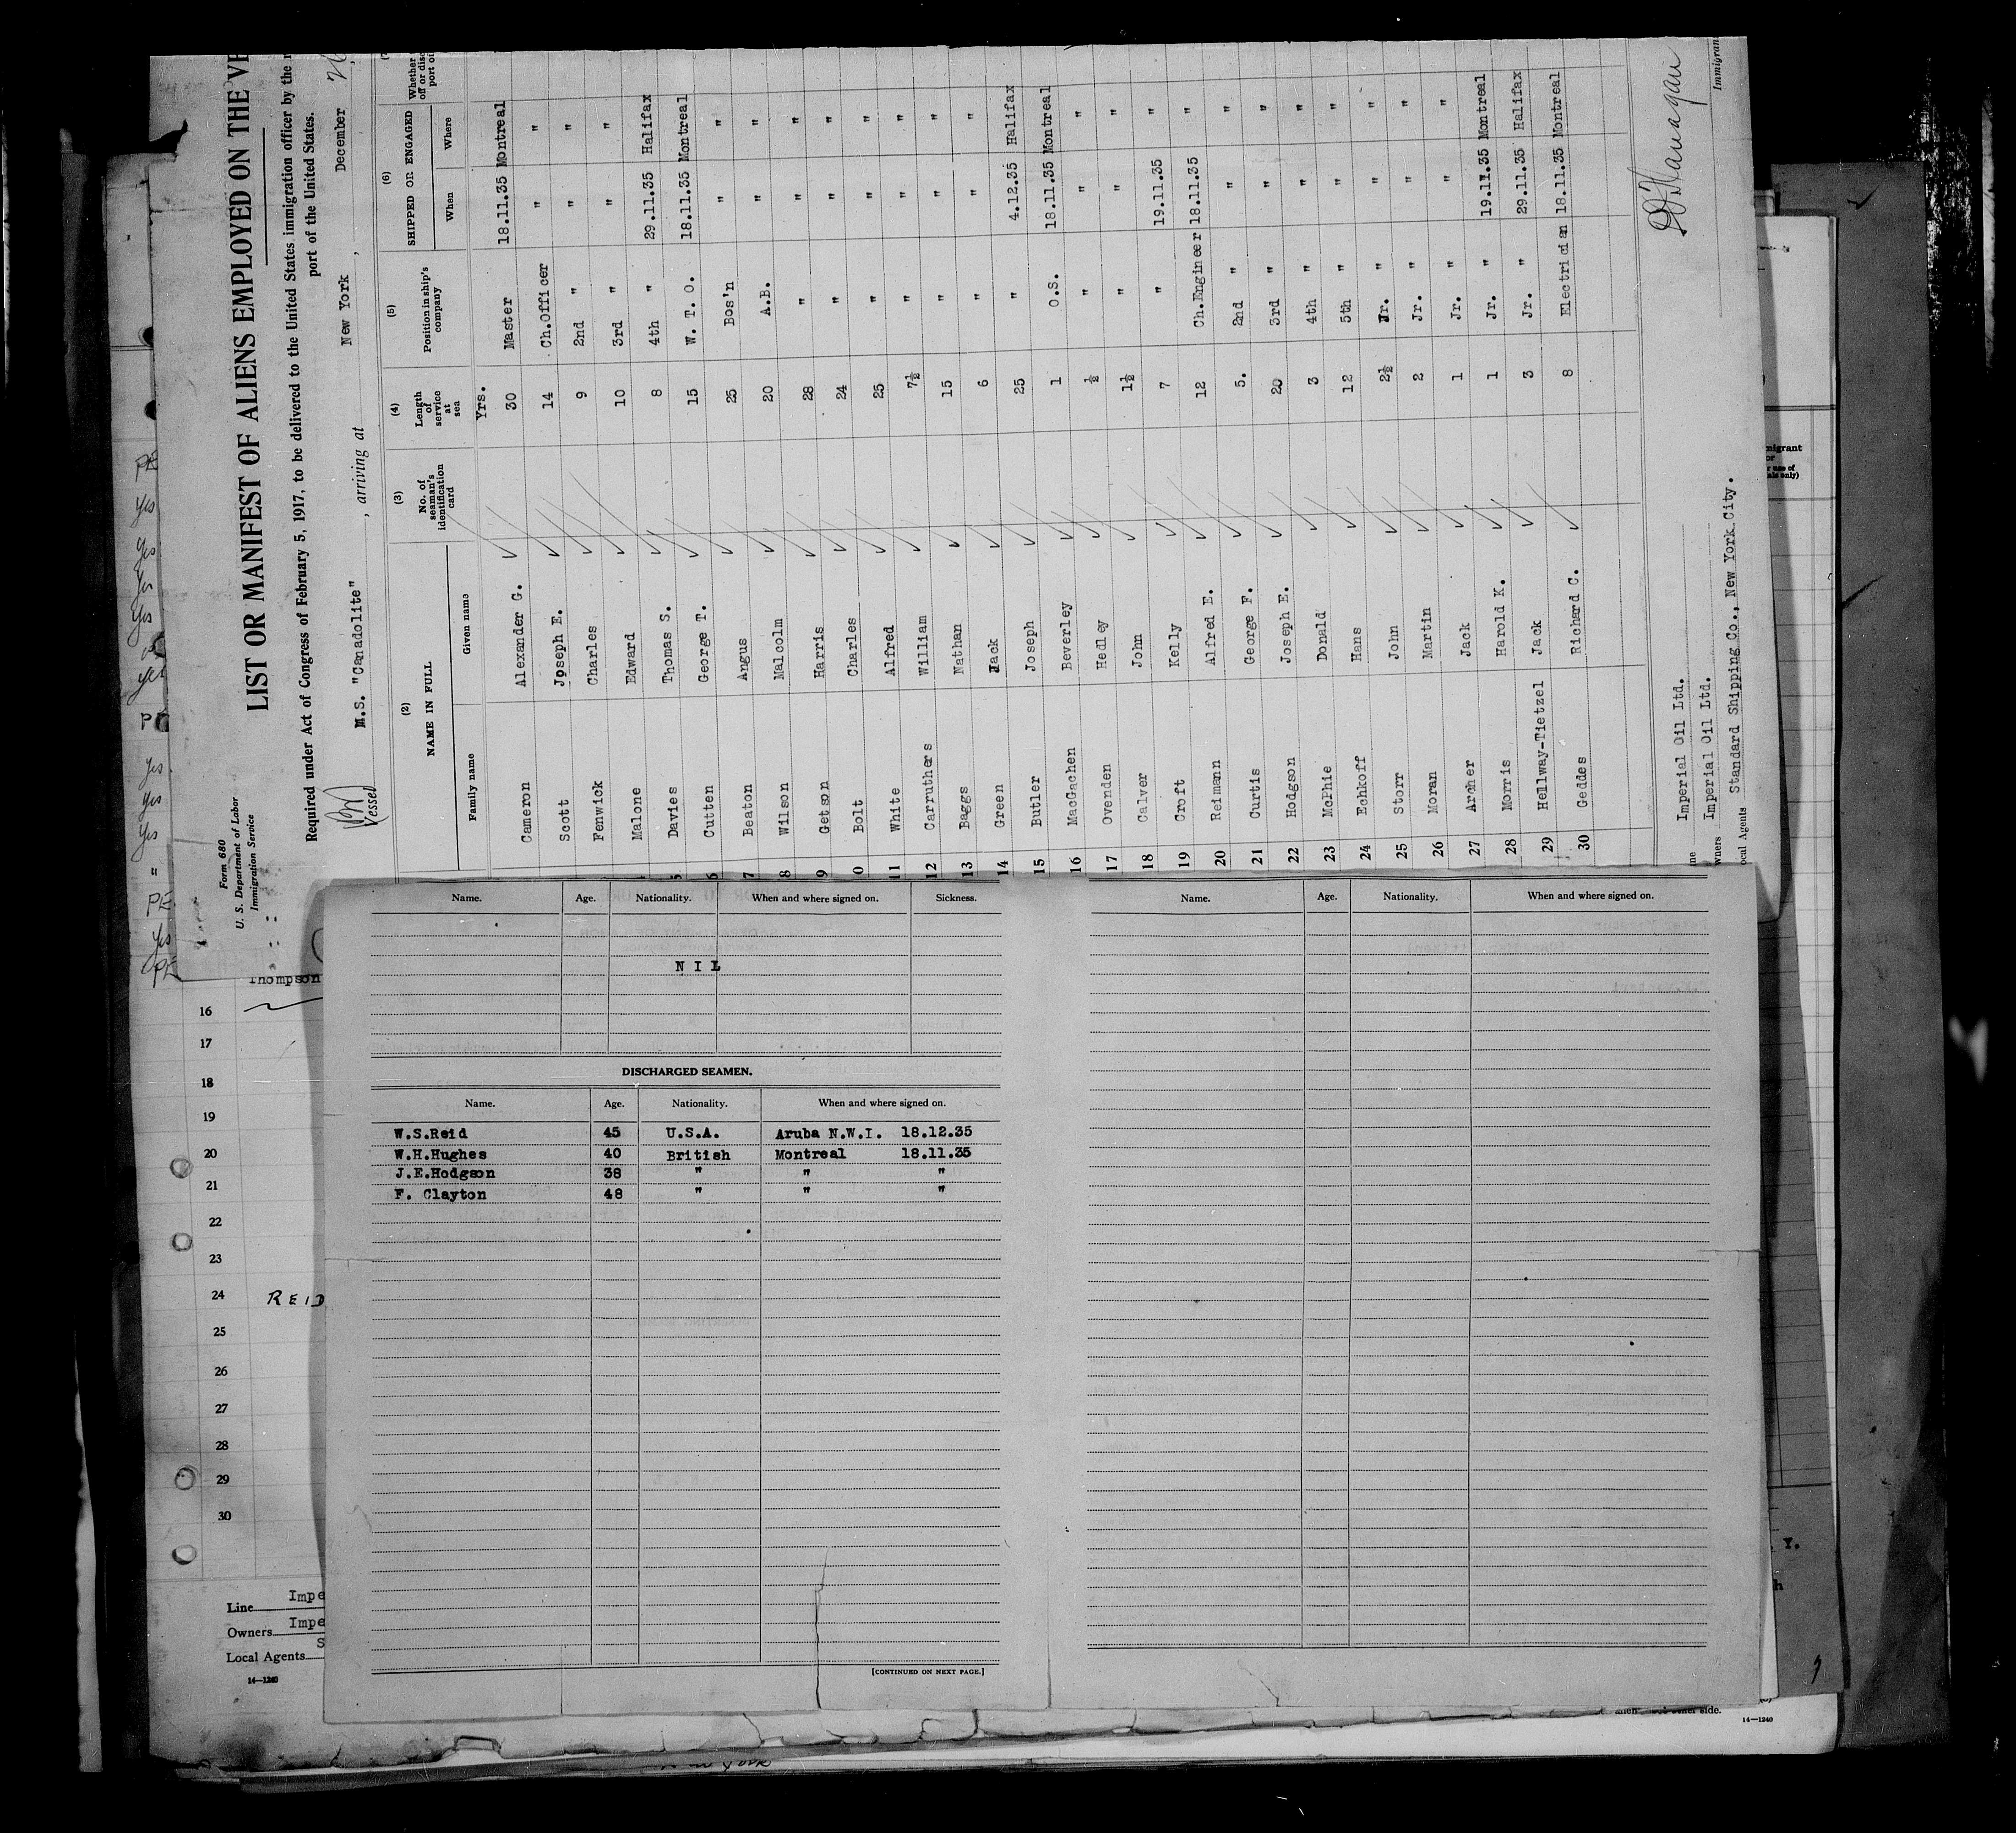 Form 680
U. S. Department of Labor
Immigration Service
LIST OR MANIFEST OF ALIENS EMPLOYED ON THE VE
Required under Act of Congress of February 5, 1917, to be delivered to the United States immigration officer by the
port of the United States.
Vessel M.S. "Canadolite" , arriving at New York , December
(2) (3) (4) (5) (6)
NAME IN FULL No. of seaman's identification card Length of service at sea Position in ship's company SHIPPED OR ENGAGED
Family name Given name When Where
Yrs.
Cameron Alexander G. 30 Master 18.11.35 Montreal
Scott Joseph E. 14 Ch.Officer " "
Fenwick Charles 9 2nd " " "
Malone Edward 10 3rd " " "
Davies Thomas S. 8 4th " 29.11.35 Halifax
Cutten George T. 15 W. T. O. 18.11.35 Montreal
7 Beaton Angus 25 Bos'n " "
8 Wilson Malcolm 20 A.B. " "
9 Getson Harris 28 " " "
0 Bolt Charles 24 " " "
11 White Alfred 25 " " "
12 Carruthers William 7½ " " "
13 Baggs Nathan 15 " " "
14 Green Jack 6 " " "
15 Butler Joseph 25 " 4.12.35 Halifax
16 MacGachen Beverley 1 O.S. 18.11.35 Montreal
17 Ovenden Hedley ½ " " "
18 Calver John 1½ " " "
19 Croft Kelly 7 " 19.11.35 "
20 Reimann Alfred E. 12 Ch.Engineer 18.11.35 "
21 Curtis George F. 5. 2nd " " "
22 Hodgson Joseph E. 20 3rd " " "
23 McPhie Donald 3 4th " " "
24 Echkoff Hans 12 5th " " "
25 Storr John 2½ Jr. " " "
26 Moran Martin 2 Jr. " " "
27 Archer Jack 1 Jr. " " "
28 Morris Harold K. 1 Jr. " 19.11.35 Montreal
29 Hellway-Tietzel Jack 3 Jr. " 29.11.35 Halifax
30 Geddes Richard C. 8 Electrician 18.11.35 Montreal
Imperial Oil Ltd.
wners Imperial Oil Ltd.
ocal Agents Standard Shipping Co., New York City.
Immigran
PE
yes
yes
yes
yes
yes
yes
yes
"
PE
yes
PE
Name. Age. Nationality. When and where signed on. Sickness.
NIL
DISCHARGED SEAMEN.
Name. Age. Nationality. When and where signed on.
W.S.Reid 45 U.S.A. Aruba N.W.I. 18.12.35
W.H.Hughes 40 British Montreal 18.11.35
J.E.Hodgson 38 " " "
F. Clayton 48 " " "
[CONTINUED ON NEXT PAGE.]
Name. Age. Nationality. When and where signed on.
Thompson
16
17
18
19
20
21
22
23
24 REID
25
26
27
28
29
30
Line Impe
Owners Impe
Local Agents S
14—1240
migrant
or
Y.
side.
14—1240